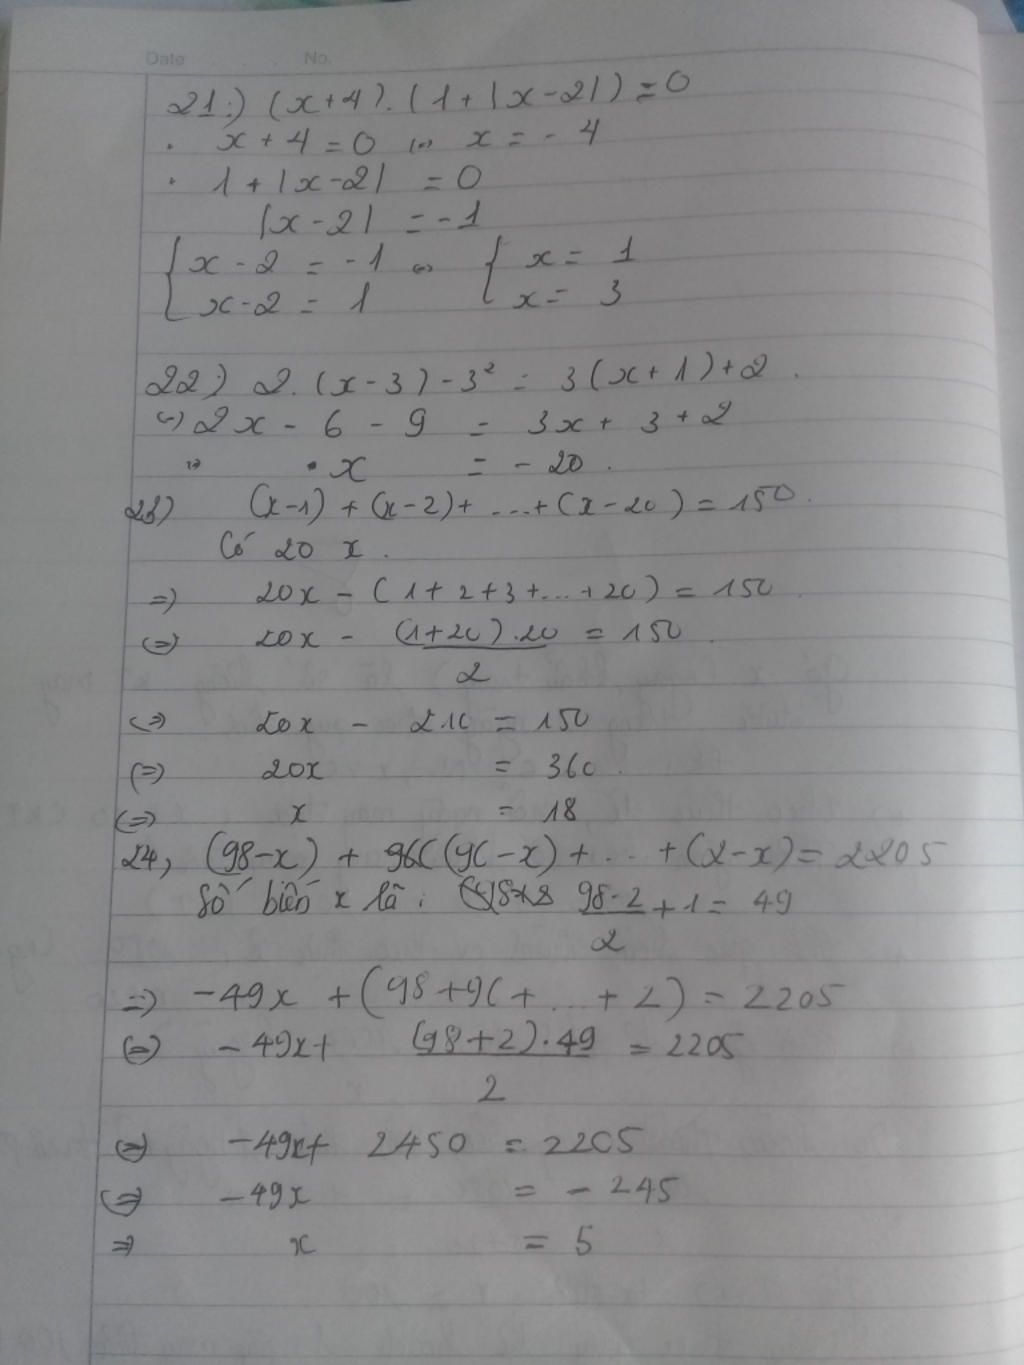 Date No.
21:) (x+4).(1+|x-2|)=0
. x+4=0 <=> x=-4
. 1+|x-2| =0
|x-2| =-1
{x-2 = -1 <=> {x= 1
{x-2 = 1 {x= 3
22) 2.(x-3)-3² = 3(x+1)+2.
<=> 2x - 6 - 9 = 3x+ 3+2
<=> x = -20.
23) (x-1)+(x-2)+...+(x-20)=150.
Có 20 x.
=> 20x-(1+2+3+...+20)=150.
<=> 20x - (1+20).20 = 150.
2
<=> 20x - 210 = 150
<=> 20x = 360.
<=> x = 18
24, (98-x) + (96-x)+... +(2-x)=2205
Số biến x là: 98-2 +1= 49
2
=> -49x +(98+96+...+2)=2205
<=> -49x+ (98+2).49 = 2205
2
<=> -49x+ 2450 = 2205
<=> -49x = -245
=> x = 5